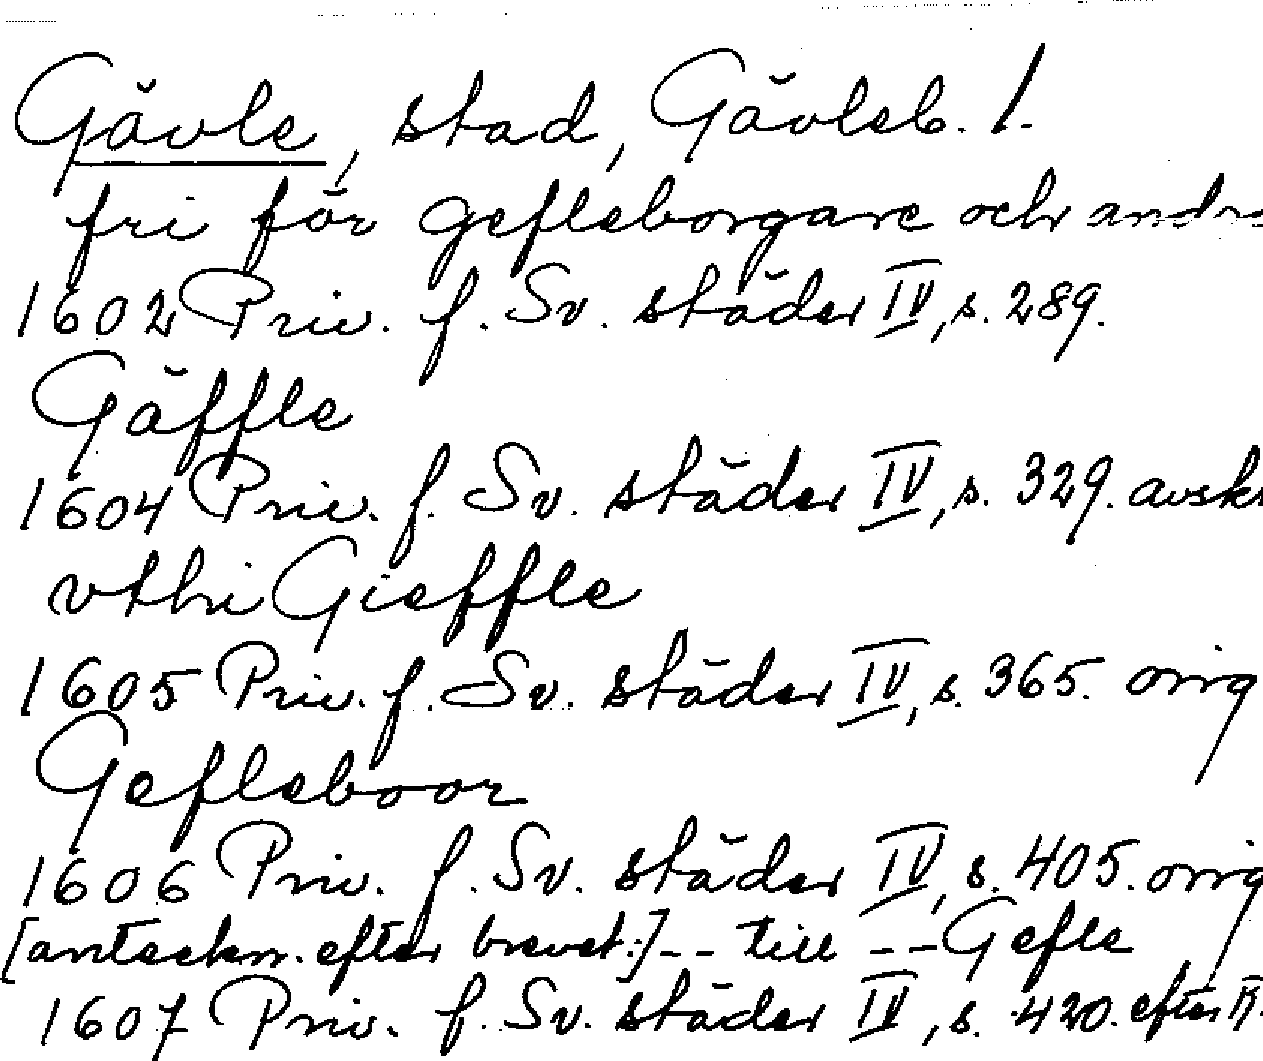 Gävle, stad, Gävleb. l.
fri för gefleborgare och andra
1602 Priv. f. Sv. städer IV, s. 289.
Gäffle
1604 Priv. f. Sv. städer IV, s. 329. avskr
vthi Gieffle
1605 Priv. f. Sv. städer IV, s. 365. orig
Gefleboor
1606 Priv. f. Sv. städer IV, s. 405. orig
[anteckn. efter brevet:] -- till -- Gefle
1607 Priv. f. Sv. städer IV, s. 420. efter R.